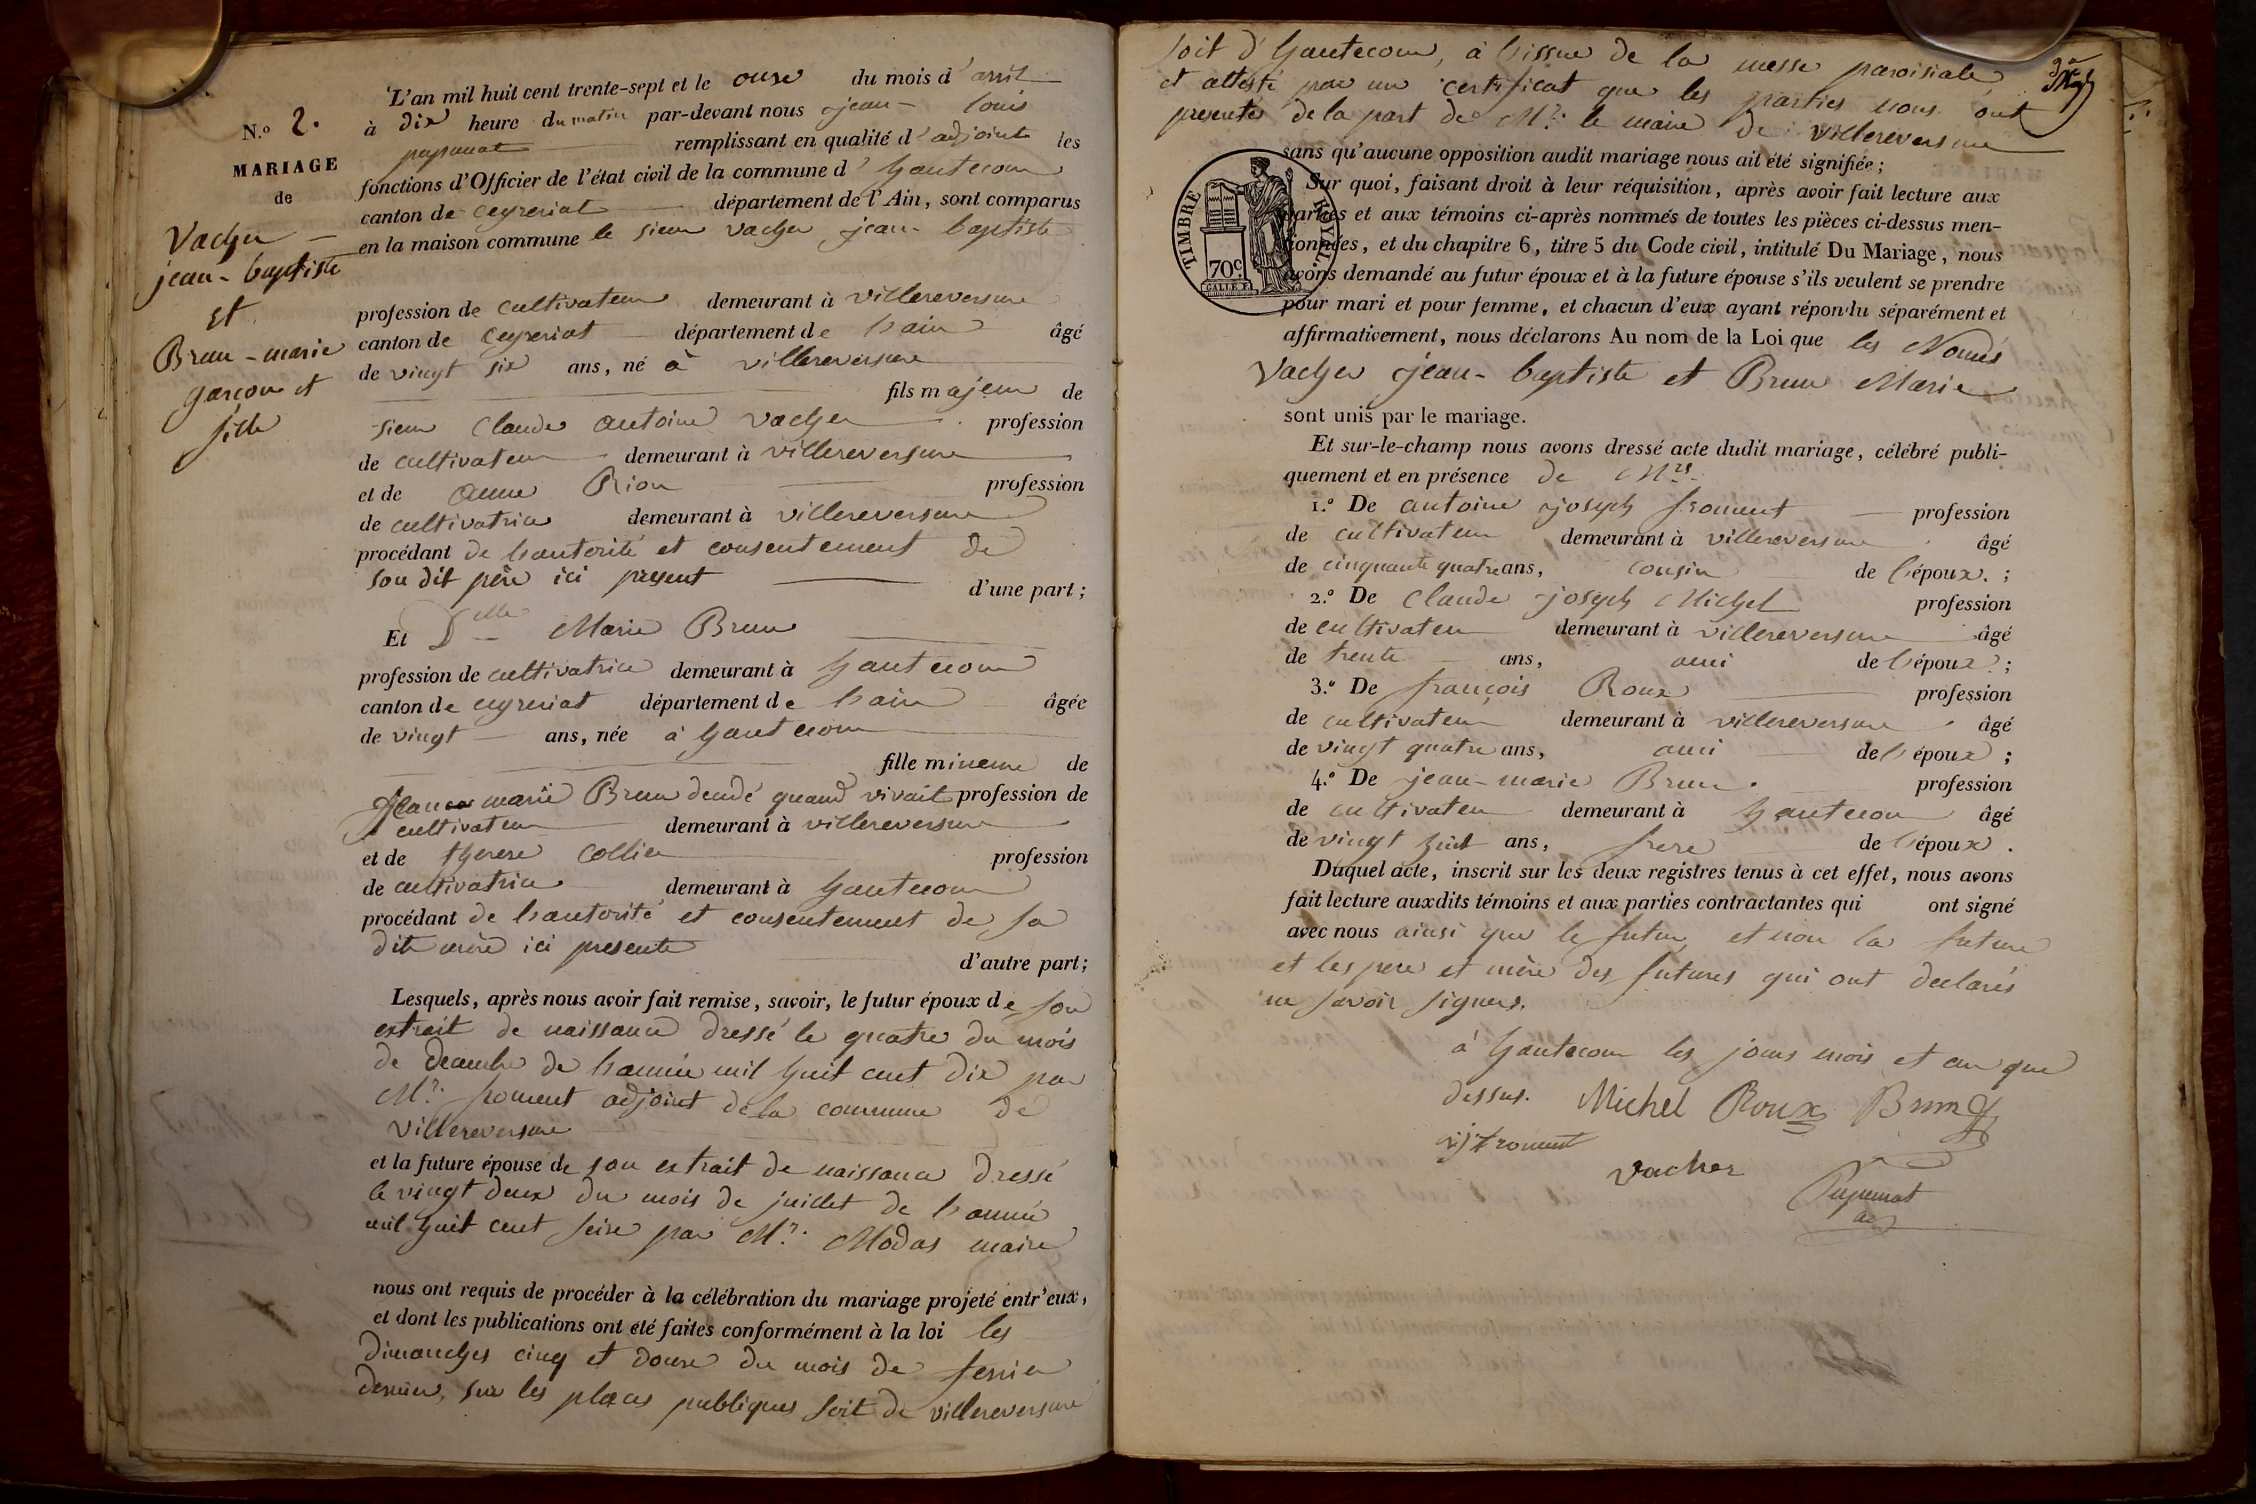 L'an mil huit cent trente-sept et le onze du mois d'avril
N.o 2. à dix heure du matin par-devant nous jean-louis
remplissant en qualité d'adjoint les
MARIAGE
fonctions d'Officier de l'état civil de la commune d'hautecour
de
canton de ceyzeriat département de l'Ain, sont comparus
en la maison commune le sieur vacher jean-baptiste
Vacher
jean-baptiste
et
Brun-marie
garçon et
fille
profession de cultivateur demeurant à villereversure
canton de ceyzeriat département de l'ain âgé
de vingt six ans, né à villereversure
fils majeur de
sieur claude antoine vacher profession
de cultivateur demeurant à villereversure
et de anne Rion profession
de cultivatrice demeurant à villereversure
procédant de l'autorité et consentement de
son dit père ici present d'une part;
Et Dlle Marie Brun
profession de cultivatrice demeurant à hautecour
canton de ceyzeriat département de l'ain âgée
de vingt ans, née à hautecour
fille mineure de
marie Brun dcudé quand vivait profession de
cultivateur demeurant à villereversure
et de therese collier profession
de cultivatrice demeurant à hautecour
procédant de l'autorité et consentement de sa
dite mère ici presente
d'autre part;
Lesquels, après nous avoir fait remise, savoir, le futur époux de son
extrait de naissance dressé le quatre du mois
de decembre de l'année mil huit cent dix par
Mr. froment adjoint de la commune de
villereversure
et la future épouse de son extrait de naissance dressé
le vingt deux du mois de juillet de l'année
mil huit cent seize par Mr. Modas maire
nous ont requis de procéder à la célébration du mariage projeté entr'eux,
et dont les publications ont été faites conformément à la loi les
dimanches cinq et douze du mois de fevrier
dernier, sur les places publiques soit de villereversure
soit d'hautecour, à l'issue de la messe paroisiale,
et attesté par un certificat que les parties nous ont
presentés de la part de Mr. le maire de villereversure
sans qu'aucune opposition audit mariage nous ait été signifiée;
Sur quoi, faisant droit à leur réquisition, après avoir fait lecture aux
parties et aux témoins ci-après nommés de toutes les pièces ci-dessus men-
tionnées, et du chapitre 6, titre 5 du Code civil, intitulé Du Mariage, nous
avons demandé au futur époux et à la future épouse s'ils veulent se prendre
pour mari et pour femme, et chacun d'eux ayant répondu séparément et
affirmativement, nous déclarons Au nom de la Loi que les Només
TIMBRE ROYAL
70c.
Vacher jean-baptiste et Brun Marie
sont unis par le mariage.
Et sur-le-champ nous avons dressé acte dudit mariage, célébré publi-
quement et en présence de Mrs.
1.o De antoine joseph froment profession
de cultivateur demeurant à villereversure âgé
de cinquante quatre ans, cousin de l'époux. ;
2.o De claude joseph Michel profession
de cultivateur demeurant à villereversure âgé
de trente ans, ami de l'époux ;
3.o De françois Roux profession
de cultivateur demeurant à villereversure âgé
de vingt quatre ans, ami de l'époux ;
4.o De jean-marie Brun profession
de cultivateur demeurant à hautecour âgé
de vingt huit ans, frere de l'époux .
Duquel acte, inscrit sur les deux registres tenus à cet effet, nous avons
fait lecture auxdits témoins et aux parties contractantes qui ont signé
avec nous ainsi que le futur, et non la future
et les pere et mère des futures qui ont declarés
ne savoir signer.
à hautecour les jours mois et an que
dessus. Michel Roux Brun
froment
vacher